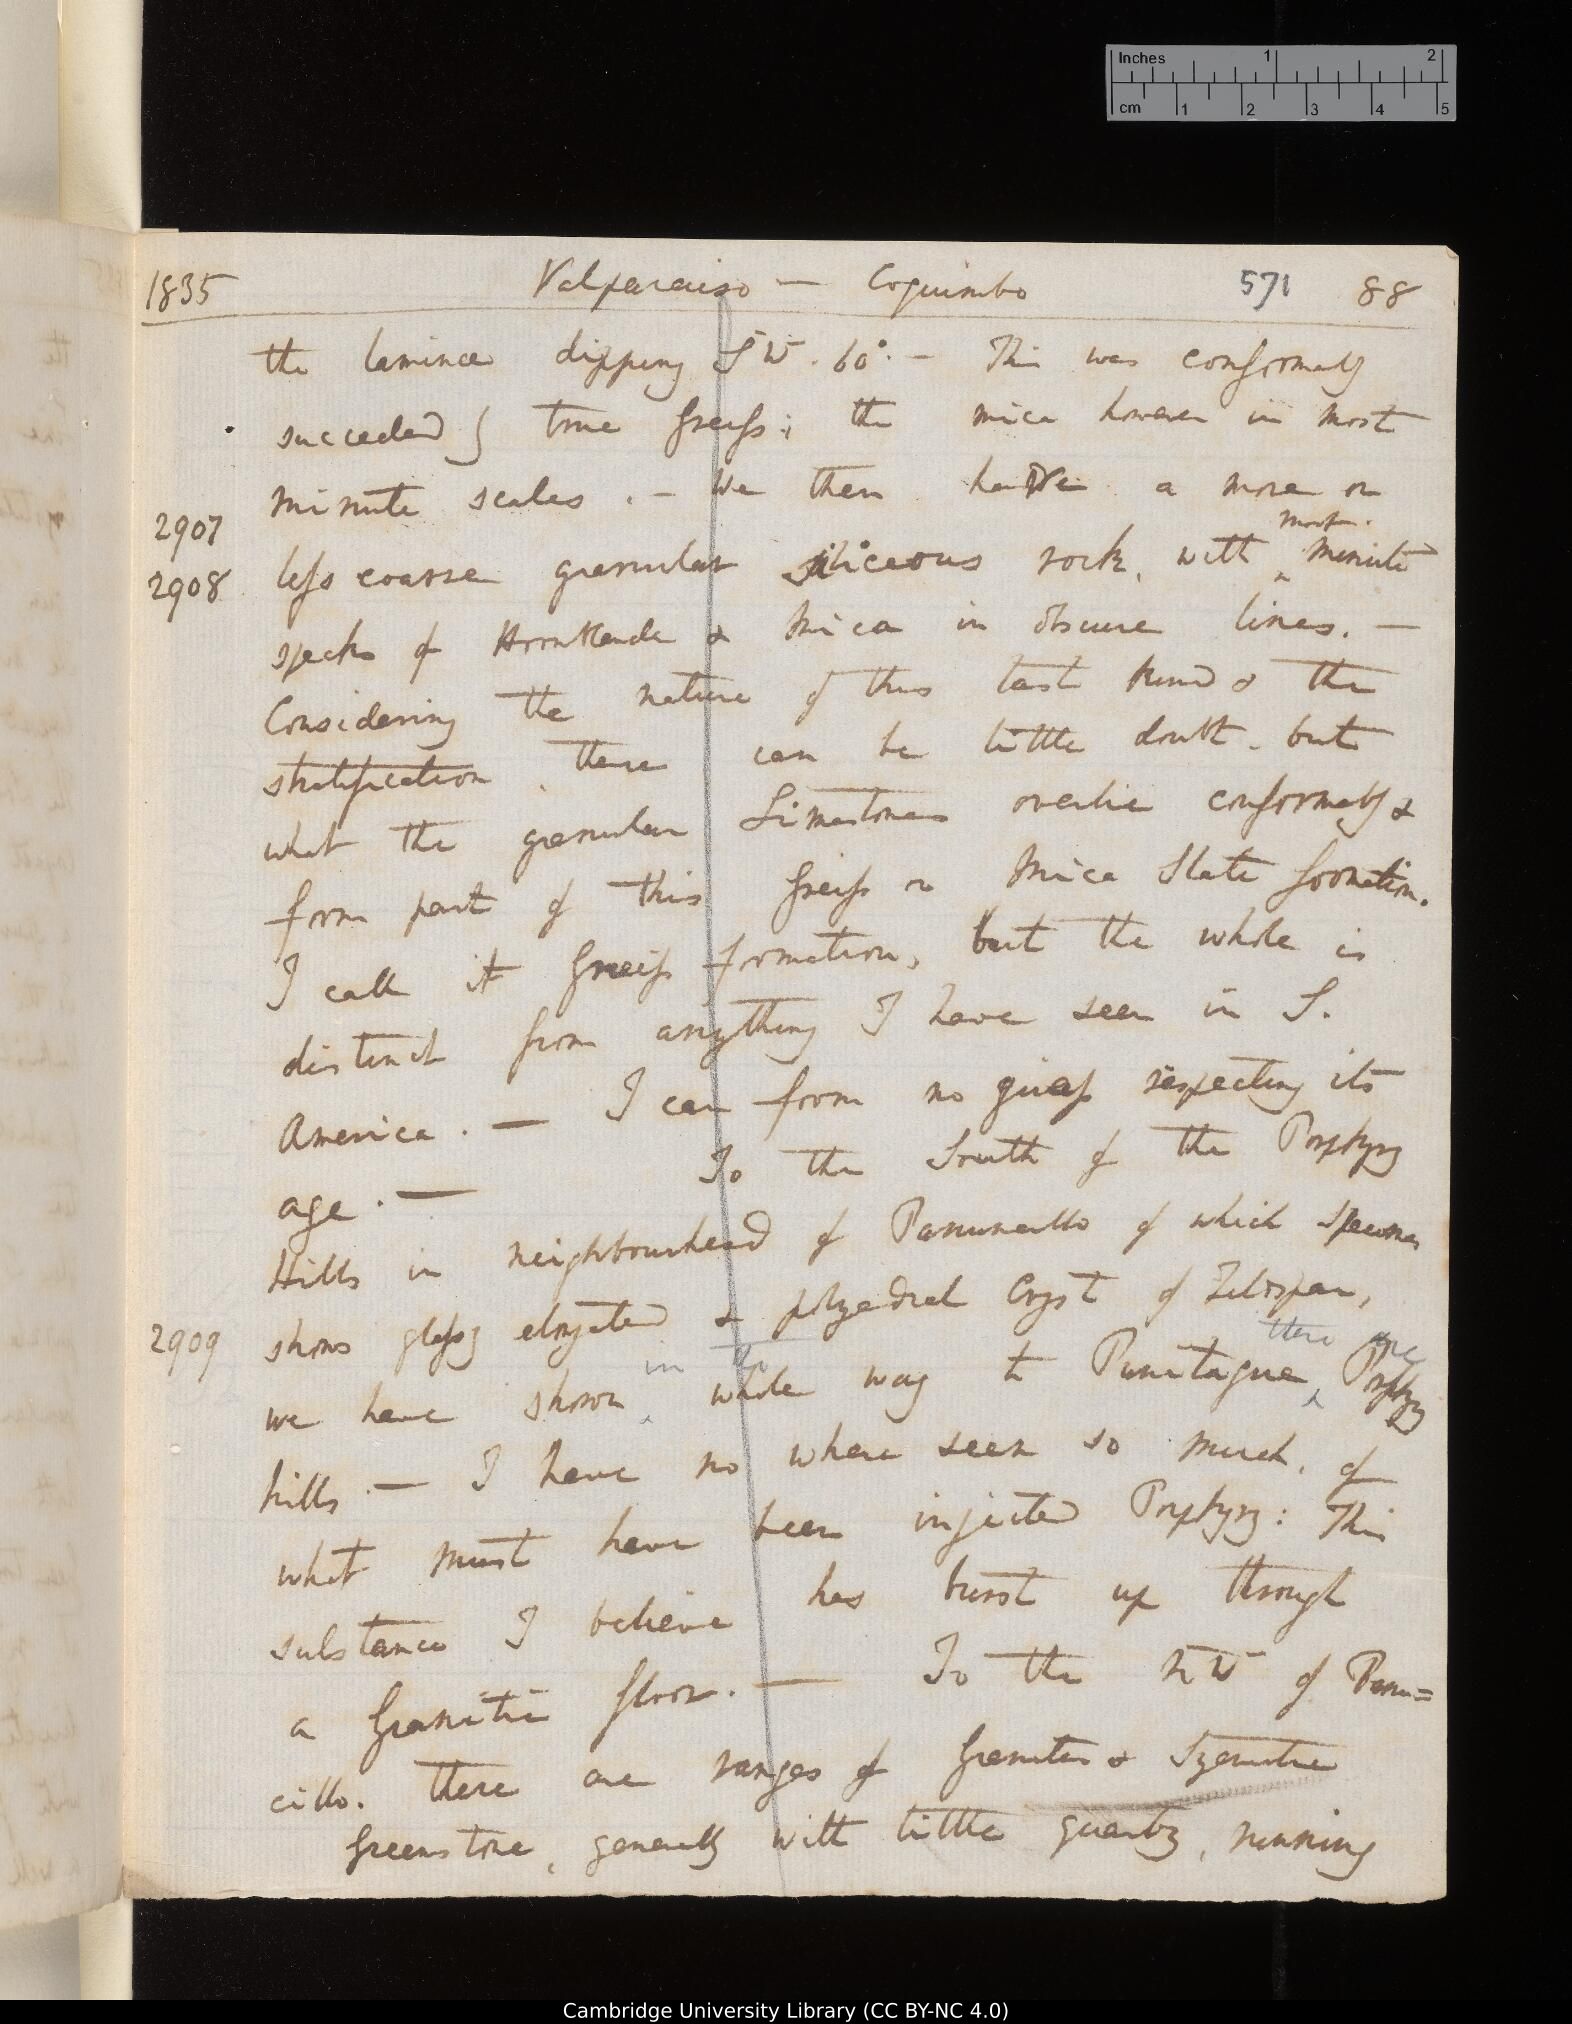 Inches 1 2
cm 1 2 3 4 5
1835 Valparaiso — Coquimbo 571 88
the laminæ dipping SW. 60°. — This was conformably
succeeded } true Gneiss; the mica however in most
minute scales. — We then have a more or
2907
most
2908 less coarse granular siliceous rock, with ^ minute
specks of Hornblende & Mica in obscure lines. —
Considering the nature of this last kind & the
stratification, there can be little doubt, but
what the granular Limestones overlie conformably &
form part of this Gneiss or Mica Slate formation.
I call it Gneiss formation, but the whole is
distinct from anything I have seen in S.
America. — I can form no guess respecting its
age. — To the South of the Porphyry
Hills in neighbourhead of Panuncillo of which specimen
2909 shows glassy elongated & polyedral Cryst of Feldspar,
in the there are
we have shown ^ whole way to Punitaque ^ Porphyry
hills. — I have no where seen so much, of
what must have been injected Porphyry: This
substance I believe has burst up through
a Granitic floor. — To the NW of Panu=
cillo. there are ranges of Granites & Syenitic
Greenstone, generally with little quartz, running
Cambridge University Library (CC BY-NC 4.0)